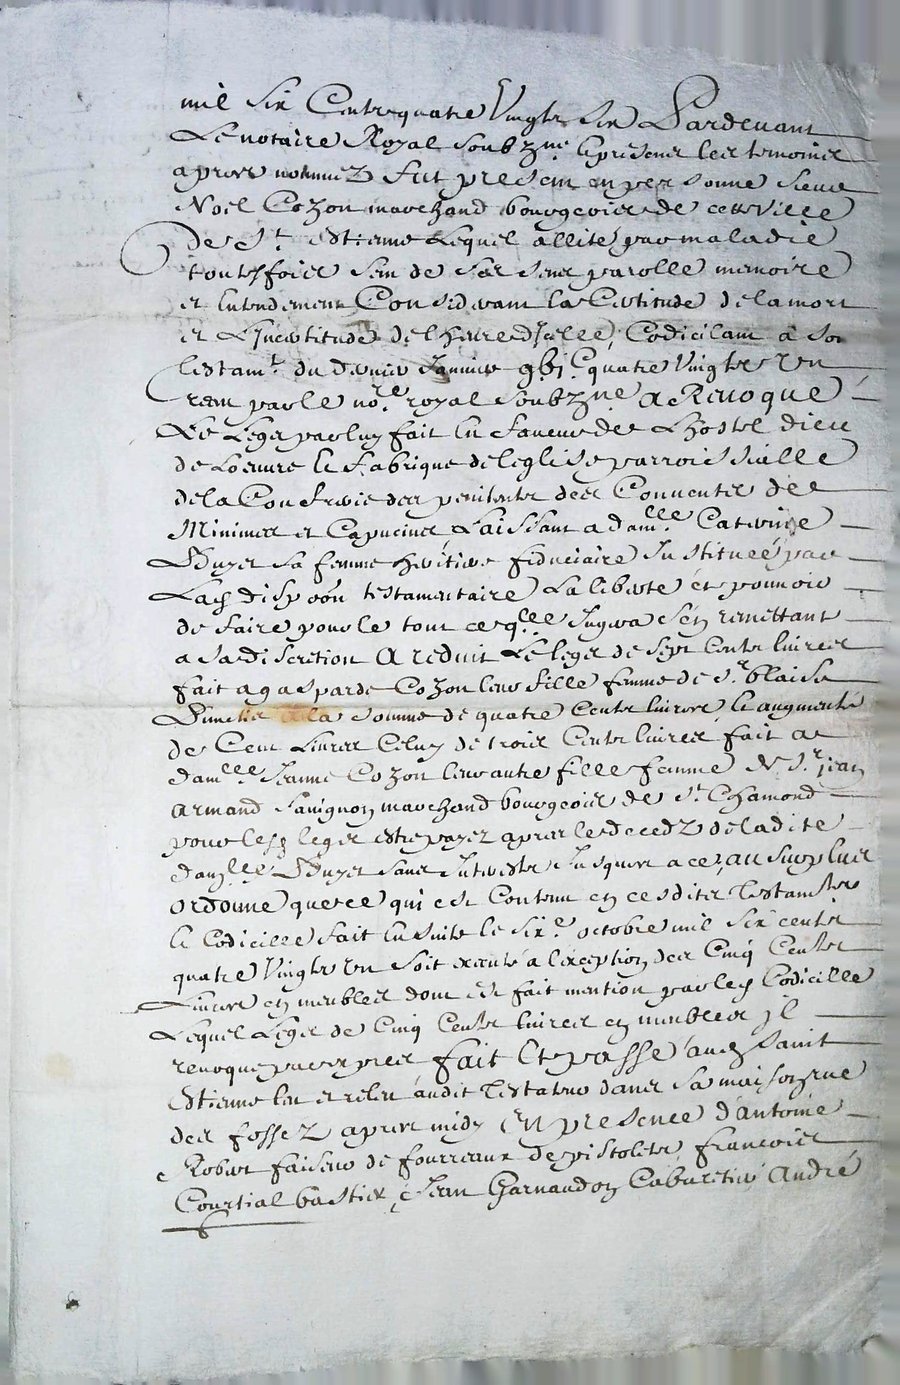 mil six Centz quatre Vingtz six Pardevant
Le notaire Royal soubzne. & presens les temoins
apres nommez fut present en personne sieur
Noel Cozon marchand bourgeois de cette Ville
De St. estienne Lequel allité par maladie
toutesfois sein de ses sens parolle memoire
et entendement Considerant la Certitude de la mort
et L'Incertitude de l'heure d'Jcelle, Codicilant a son
testamt. du dernier Janvier gbjC quatre Vingtz Un
receu par le nore. royal soubzne a Revoqué
Les Legz par luy fait En faveur de L'hostel dieu
de Loeuvre & fabrique de leglise parroissialle
de la Confrerie des penitentz des Conventz des
Minimes et Capucins Laissant a damlle Caterine
Duyet sa femme heritiere fiduciaire Instituée par
Lad dispoon testamentaire La liberté et pouvoir
de faire pour le tout ce qlle Jugera s'en remettant
a sa discretion A reduit Le legz de sept Centz livres
fait a gasparde Cozon leur fille femme de Sr. blaise
a la somme de quatre Centz livres & augmenté
de Cent Livres Celuy de trois Centz livres fait a
damlle Jeanne Cozon leur autre fille femme de Sr. jean
Armand Savignon marchand bourgeois de St Chamond
pour lesd legz estre payez apres le decedz de ladite
damlle Duyet sans Interestz Jusques a ce, au surplus
ordonne que ce qui est Contenu en cesdites Testamtz
& Codicille fait En suite le sixe. octobre mil six centz
quatre Vingtz Un soit executé a l'exception des Cinq Centz
Livres en meubles dont est fait mention par led Codicille
Lequel Legz de Cinq Centz livres en meubles jl
revoque par exprez fait Et passé aud saint
Estienne leu et releu audit Testateur dans sa maison rue
des fossez apres midy En presence d'antoine
Robert faiseur de fourreaux de pistoletz, francois
Courtial bastier, & Jean Garnaudon Cabaretier André